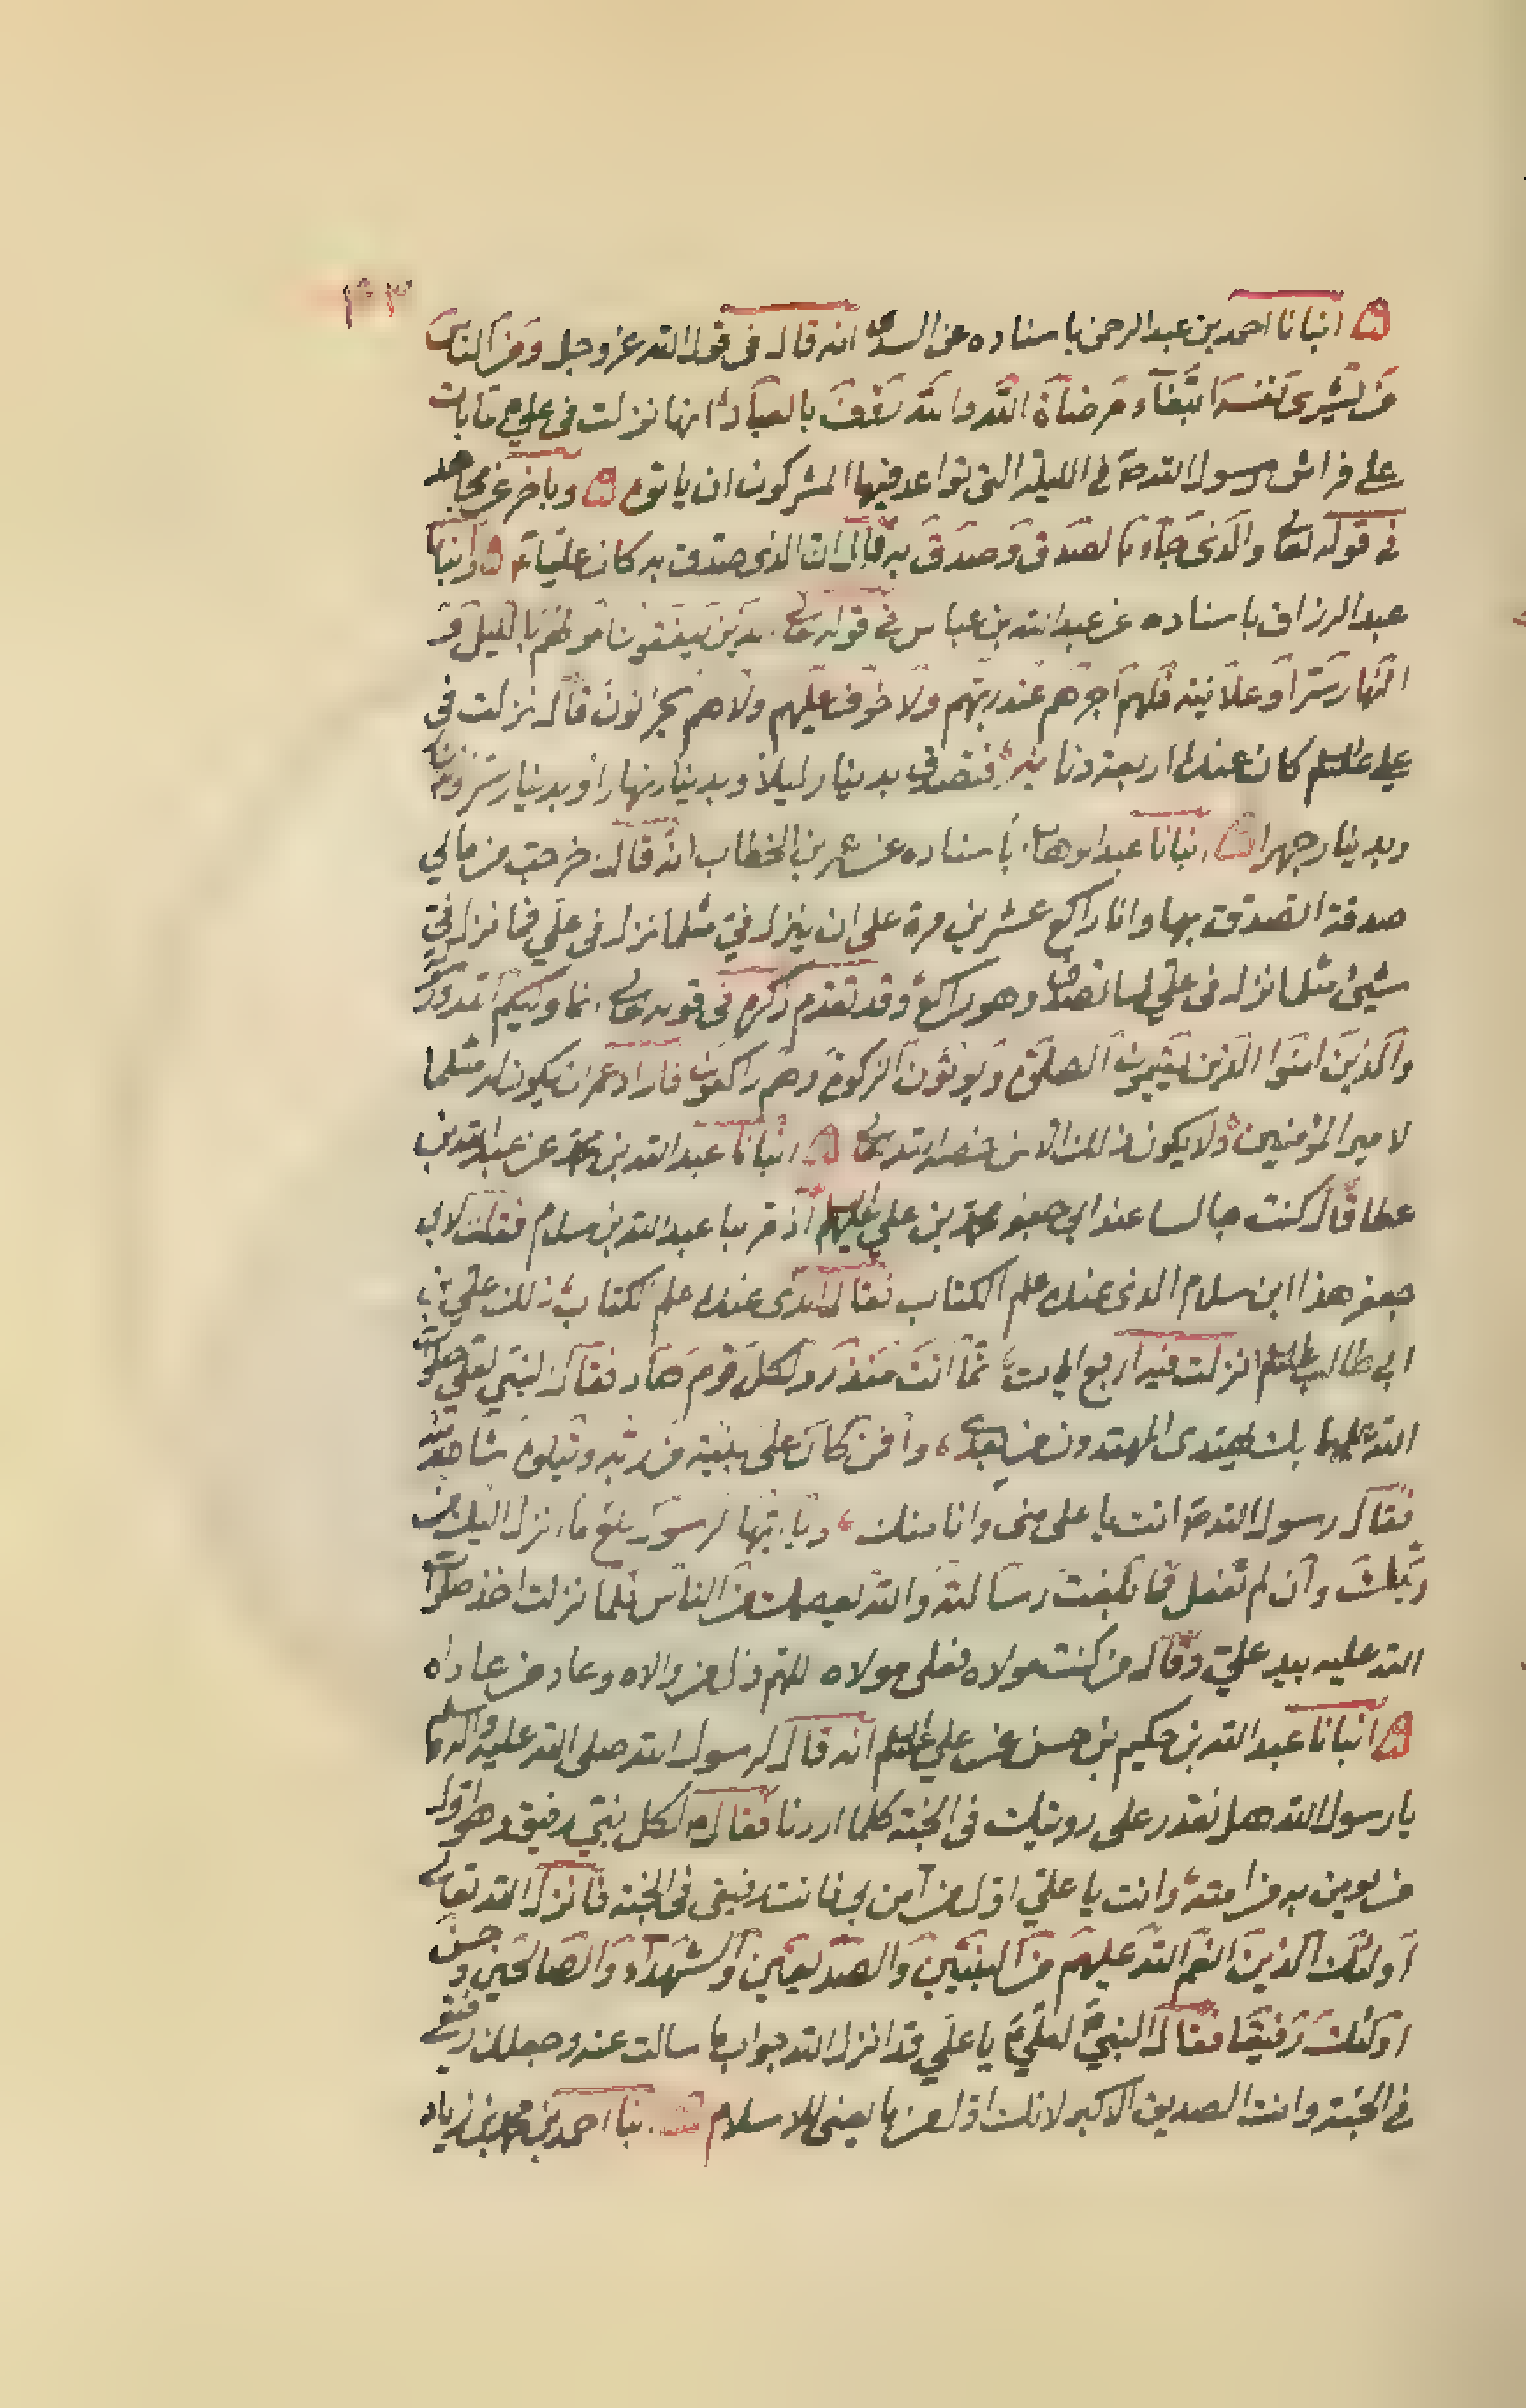 ١٠٣
انبانا احمد بن عبد الرحمن باسناده عن السدى انه قال فى قول الله عز وجل وَمِنَ النَّاسِ
مَن يَشْرِى نَفْسَهُ ابْتِغَآءَ مَرْضَاةِ اللَّهِ وَاللَّهُ رَؤُفٌ بِالْعِبَادِ انها نزلت فى علي ع مّا بات
على فراش رسول الله ص فى الليلة التى تواعد فيها المشركون ان ياتوه وباخر عن مجاهد
فى قوله تعا والَّذى جَآءَ بالصّدق وَصَدّقَ بِهِ قال ان الذى صدّق به كان عليّا ع وانبانا
عبد الرزاق باسناده عن عبد الله بن عباس فى قوله تعالى الذين يُنفقون اموالهم باللّيل وَ
النّهار سرّاً وعَلانية فلهم اجرهم عند ربّهم ولا خوف عليهم ولا هم يحزنون قال نزلت فى
على عليه السلم كان عنده اربعة دنانير فتصدق بدينار ليلاً وبدينار نهاراً وبدينار سرّا
وبدينار جهرا انبانا عبد الوهاب باسناده عن عمر بن الخطاب انه قال خرجت من مالي
صدقة اتصدق بها وانا راكع عشرين مرة على ان ينزل فيّ مثلما نزل فى علي فما نزل فيّ
شيئ مثلما نزل فى علي لما تصدق وهو راكع وقد تقدم ذكره فى قوله تعالى انما وليكم الله ورسوله
والّذين امنوا الّذين يقيمون الصلوة ويؤتون الزكوة وهم راكعون فاراد عمر ان يكون له مثلما
لامير المؤمنين ولا يكون ذلك الا من خصه الله تعالى انبانا عبد الله بن محمد عن عبد الله بن
عطا قال كنت جالسا عند ابي جعفر محمد بن علي عليهم السلم اذ مر بنا عبد الله بن سلام فقلت لابي
جعفر هذا ابن سلام الذى عنده علم الكتاب فقال الذى عنده علم الكتاب ذلك علي بن
ابي طالب عليه السلم انزلت فيه اربع ايات انّما انت منذر ولكلّ قوم هاد فقال النبي لعلي صلوات
الله عليهما بك يهتدى المهتدون من بعدى وافمن كان على بيّنة من ربّه ويتلوه شاهد منه
فقال رسول الله ص انت يا على منى وانا منك ويا ايّها الرسول بلغ ما انزل اليك من
ربّك وان لم تفعل فما بلّغت رسالته والله يعصمك من النّاس فلما نزلت اخذ صلوات
الله عليه بيد عليّ وقال من كنت مولاه فعلى مولاه اللهم وال من والاه وعاد من عاداه
انبانا عبد الله بن حكيم بن حسن عن علي عليه السلم انه قال لرسول الله صلى الله عليه واله وسلم
يا رسول الله هل نقدر على رؤيتك فى الجنة كلما اردنا فقال ص لكل نبيّ رفيق وهو اول
من يومن به من امته وانت يا علي اول من آمن بي فانت رفيقى فى الجنة فانزل الله تعالى
اُولئك الّذين انعم الله عليهم من النبيّين والصدّيقين والشّهداء والصّالحين وحسن
اولئك رفيقا فقال النبي لعلي ع يا علي قد انزل الله جواب ما سالت عنه وجعلك رفيقى
فى الجنّة وانت الصديق الاكبر لانك اول من بايعنى للاسلام انبانا احمد بن محمد بن زياد